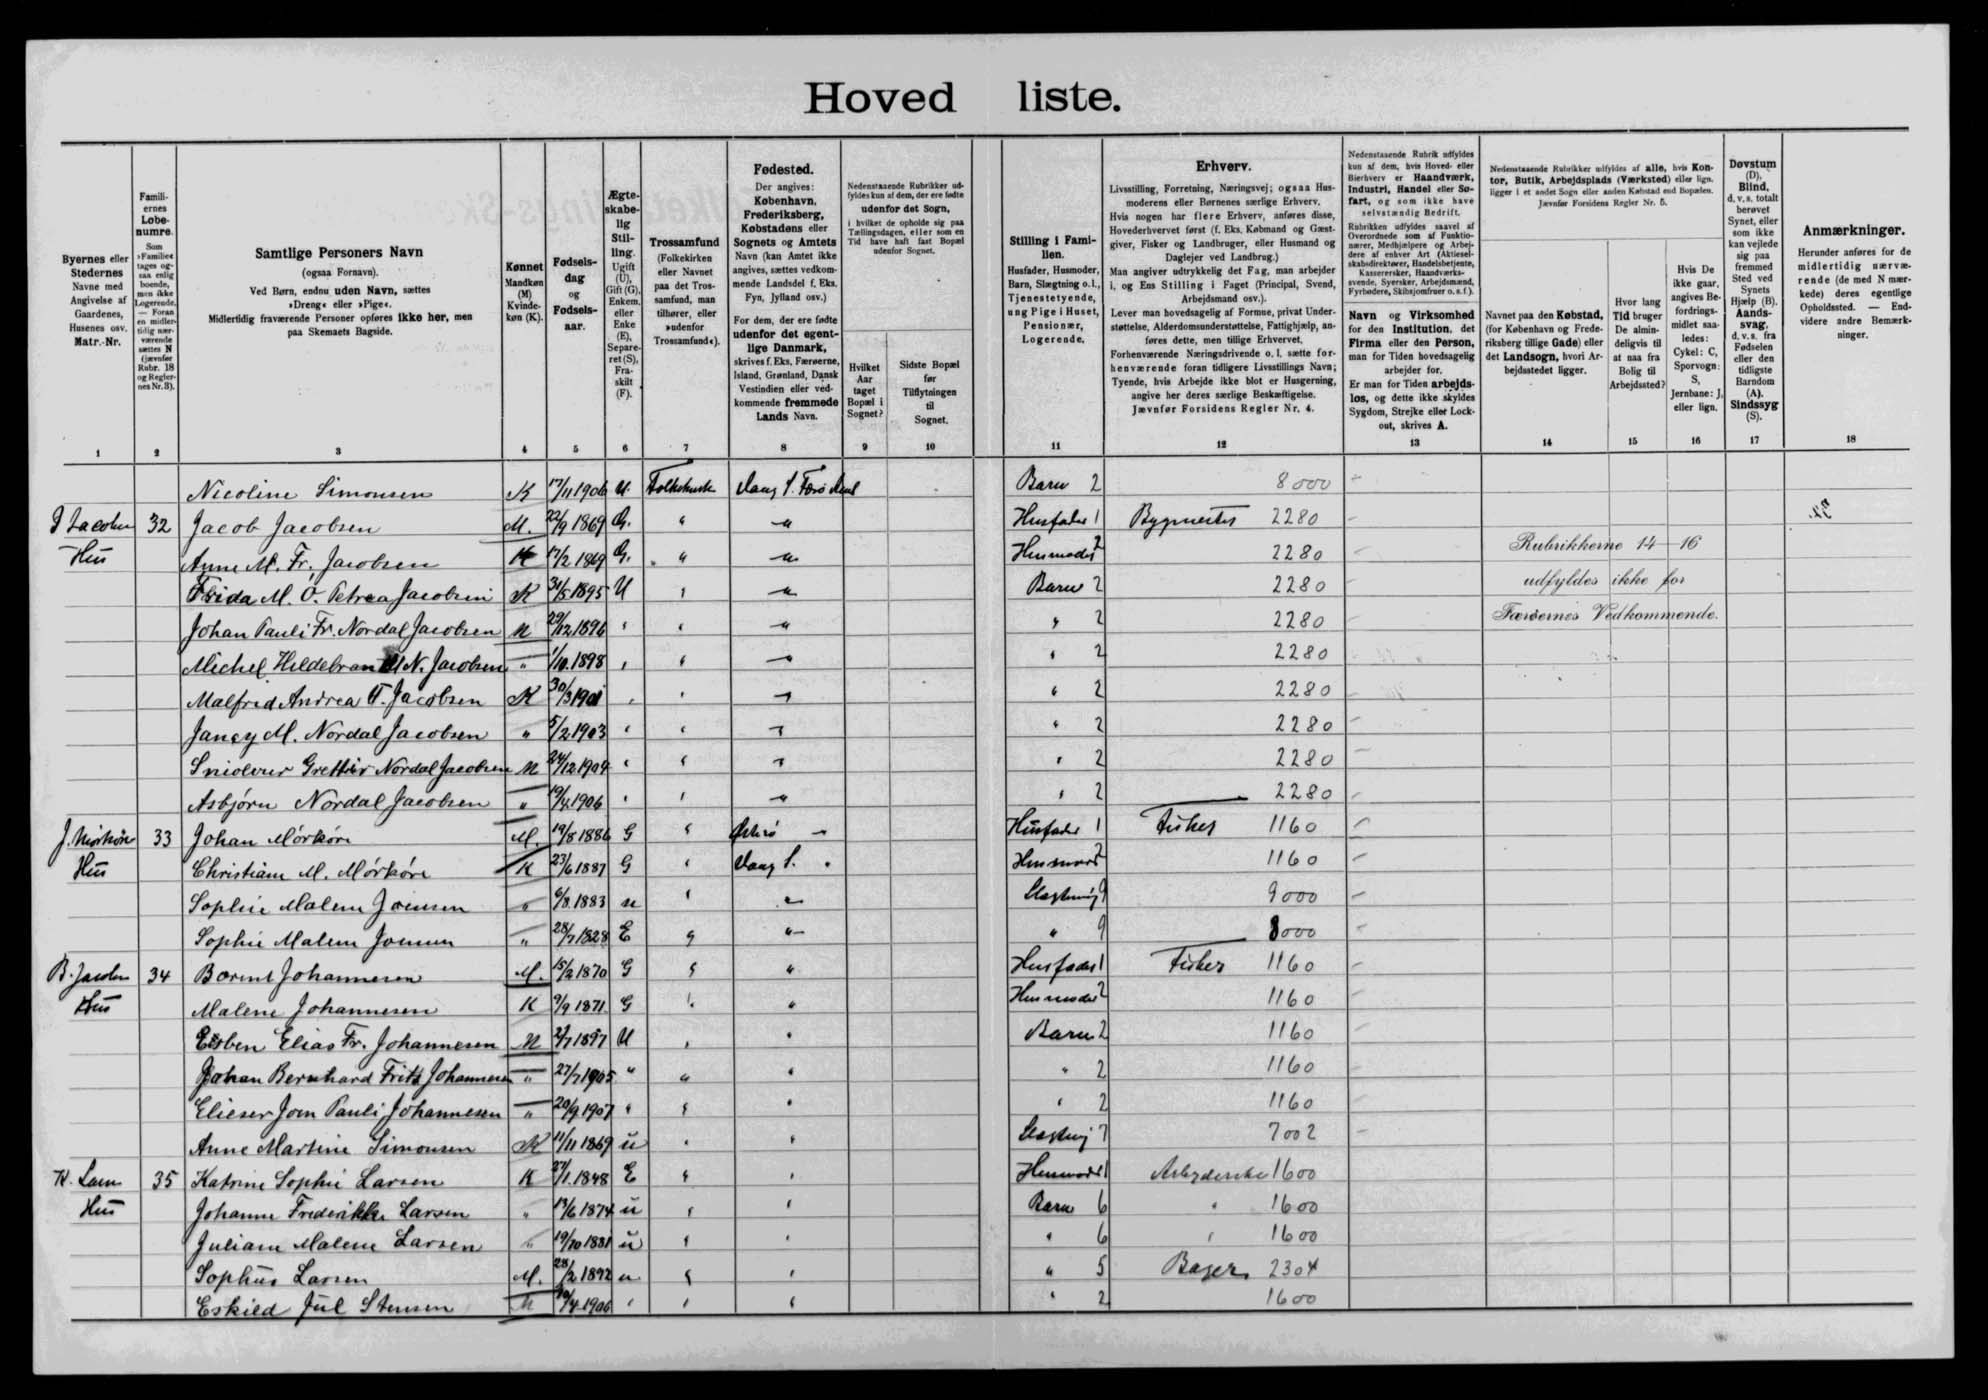 Hoved liste.
Byernes eller Stedernes Navne med Angivelse af Gaardenes, Husenes osv. Matr.-Nr.
Familiernes Løbenumre. Som »Familie« tages ogsaa enlig boende, men ikke Logerende. — Foran en midlertidig nærværende sættes N (jævnfør Rubr. 18 og Reglernes Nr. 3).
Samtlige Personers Navn
(ogsaa Fornavn).
Ved Børn, endnu uden Navn, sættes »Dreng« eller »Pige«.
Midlertidig fraværende Personer opføres ikke her, men paa Skemaets Bagside.
Kønnet Mandkøn (M) Kvindekøn (K).
Fødselsdag og Fødselsaar.
Ægteskabelig Stilling. Ugift (U), Gift (G), Enkem. eller Enke (E), Separeret (S), Fraskilt (F).
Trossamfund (Folkekirken eller Navnet paa det Trossamfund, man tilhører, eller »udenfor Trossamfund«).
Fødested.
Der angives: København, Frederiksberg, Købstadens eller Sognets og Amtets Navn (kan Amtet ikke angives, sættes vedkommende Landsdel f. Eks. Fyn, Jylland osv.)
For dem, der ere fødte udenfor det egentlige Danmark, skrives f. Eks. Færøerne, Island, Grønland, Dansk Vestindien eller vedkommende fremmede Lands Navn.
Nedenstaaende Rubrikker udfyldes kun af dem, der ere fødte udenfor det Sogn, i hvilket de opholde sig paa Tællingsdagen, eller som en Tid have haft fast Bopæl udenfor Sognet.
Hvilket Aar taget Bopæl i Sognet?
Sidste Bopæl før Tilflytningen til Sognet.
Stilling i Familien.
Husfader, Husmoder, Barn, Slægtning o.l., Tjenestetyende, ung Pige i Huset, Pensionær, Logerende.
Erhverv.
Livsstilling, Forretning, Næringsvej; ogsaa Husmoderens eller Børnenes særlige Erhverv.
Hvis nogen har flere Erhverv, anføres disse, Hovederhvervet først (f. Eks. Købmand og Gæstgiver, Fisker og Landbruger, eller Husmand og Daglejer ved Landbrug.)
Man angiver udtrykkelig det Fag, man arbejder i, og Ens Stilling i Faget (Principal, Svend, Arbejdsmand osv.).
Lever man hovedsagelig af Formue, privat Understøttelse, Alderdomsunderstøttelse, Fattighjælp, anføres dette, men tillige Erhvervet.
Forhenværende Næringsdrivende o. l. sætte forhenværende foran tidligere Livsstillings Navn; Tyende, hvis Arbejde ikke blot er Husgerning, angive her deres særlige Beskæftigelse.
Jævnfør Forsidens Regler Nr. 4.
Nedenstaaende Rubrik udfyldes kun af dem, hvis Hoved- eller Bierhverv er Haandværk, Industri, Handel eller Søfart, og som ikke have selvstændig Bedrift.
Rubrikken udfyldes saavel af Overordnede som af Funktionærer, Medhjælpere og Arbejdere af enhver Art (Aktieselskabsdirektører, Handelsbetjente, Kassererersker, Haandværkssvende, Syersker, Arbejdsmænd, Fyrbødere, Skibsjomfruer o. s. f.).
Navn og Virksomhed for den Institution, det Firma eller den Person, man for Tiden hovedsagelig arbejder for.
Er man for Tiden arbejdsløs, og dette ikke skyldes Sygdom, Strejke eller Lockout, skrives A.
Nedenstaaende Rubrikker udfyldes af alle, hvis Kontor, Butik, Arbejdsplads (Værksted) eller lign. ligger i et andet Sogn eller anden Købstad end Bopælen.
Jævnfør Forsidens Regler Nr. 5.
Navnet paa den Købstad, (for København og Frederiksberg tillige Gade) eller det Landsogn, hvori Arbejdsstedet ligger.
Hvor lang Tid bruger De almindeligvis til at naa fra Bolig til Arbejdssted?
Hvis De ikke gaar, angives Befordringsmidlet saaledes: Cykel: C, Sporvogn: S, Jernbane: J, eller lign.
Døvstum (D), Blind, d. v. s. totalt berøvet Synet, eller som ikke kan vejlede sig paa fremmed Sted ved Synets Hjælp (B). Aandssvag, d. v. s. fra Fødselen eller den tidligste Barndom (A). Sindssyg (S).
Anmærkninger.
Herunder anføres for de midlertidig nærværende (de med N mærkede) deres egentlige Opholdssted. — Endvidere andre Bemærkninger.
1 2 3 4 5 6 7 8 9 10 11 12 13 14 15 16 17 18
Nicoline Simonsen K 17/11 1906 U Folkekirke Vaag S. Barn 2 8000
Jacobsen 32 Jacob Jacobsen M. 22/9 1869 G. " " Husfader 1 Bygmester 2280
Hus Anne M. Fr. Jacobsen K 17/2 1869 G. " " Husmoder 2 2280 Rubrikkerne 14-16
Frida M. O. Petrea Jacobsen K 31/5 1895 U " " Barn 2 2280 udfyldes ikke for
Johan Pauli Fr. Nordal Jacobsen M 29/12 1896 " " " " 2 2280 Færøernes Vedkommende.
Michel Hildebrandt N. Jacobsen " 1/10 1898 " " " " 2 2280
Malfred Andrea F. Jacobsen K 30/3 1901 " " " " 2 2280
M. Nordal Jacobsen " 5/2 1903 " " " " 2 2280
Sniolvur Grettir Nordal Jacobsen M 24/12 1904 " " " " 2 2280
Asbjørn Nordal Jacobsen " 19/4 1906 " " " " 2 2280
J. Mörköre 33 Johan Mörköre M. 19/8 1886 G " " Husfader 1 Fisker 1160
Hus Christiane M. Mörköre K 23/6 1887 G " Vaag S. " Husmoder 2 1160
Sophie Malene Joensen " 6/8 1883 u " " Slægtning 9 9000
Sophie Malene Joensen " 28/7 1828 E " " " 9 8000
34 Johannesen M. 15/2 1870 G " " Husfader 1 Fisker 1160
Hus Malene Johannesen K 9/9 1871 G " " Husmoder 2 1160
Esben Elias Fr. Johannesen M 1897 U " " Barn 2 1160
Johan Bernhard Fritz Johannesen " 27/7 1905 " " " " 2 1160
Elieser Joen Pauli Johannesen " 20/9 1907 " " " " 2 1160
Anne Martine Simonsen K 11/11 1869 u " " Slægtning 7 7002
35 Katrine Sophie Larsen K 27/1 1848 E " " Husmoder 1 Arbejderske 1600
Hus Johanne Frederikke Larsen " 13/6 1874 u " " Barn 6 " 1600
Juliane Malene Larsen " 19/10 1881 u " " " 6 " 1600
Sophus Larsen M. 28/2 1892 u " " " 5 Bager 2304
Eskild Jul Stensen M 4 1906 " " " " 2 1600